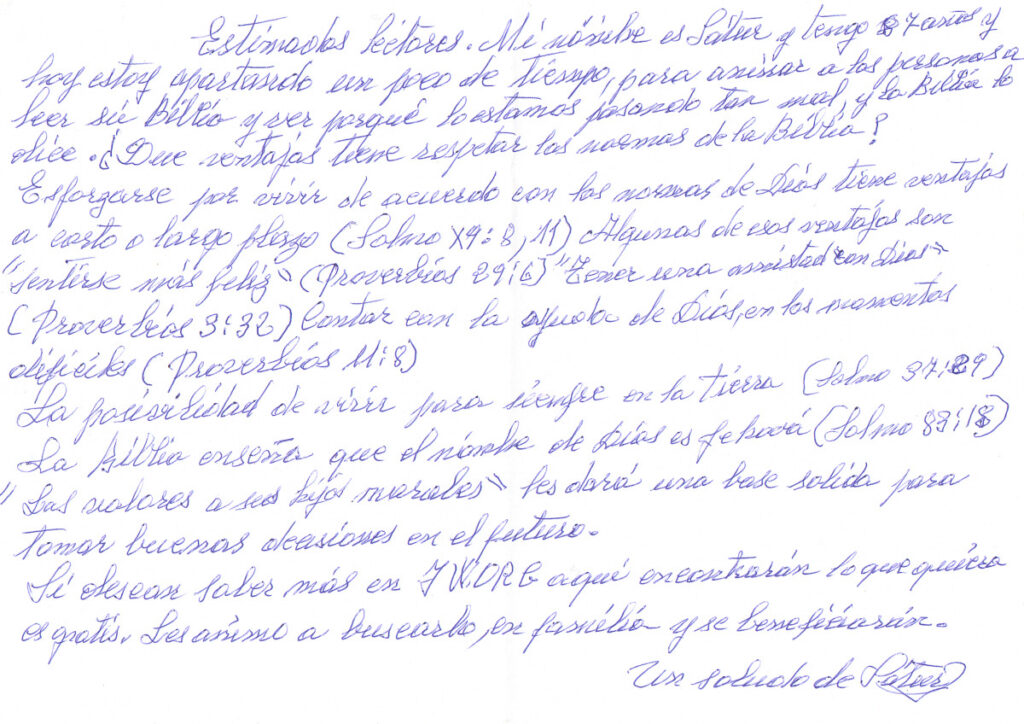 Estimados lectores. Mi nómbre es Sátur y tengo 87 años y
hoy estoy apartando un poco de tíempo, para anímar a las personas a
leer sú Bíblia y ver porqué lo estamos pasando tan mal, y la Bíblia lo
dice. ¿Que ventajas tiene respetar las normas de la Bíblia?
Esforzarse por vívír de acuerdo con las normas de Díos tíene ventajas
a corto o largo plazo (Salmo 19:8,11) Algunas de esas ventajas son
"sentirse más felíz" (Proverbíos 29:6) "Tener una amístad con Dios"
(Proverbíos 3:32) Contar con la ayuda de Díos, en los momentos
difíciles (Proverbíos 11:8)
La posivilídad de vívír para síempre en la tíerra (Salmo 37:29)
La Bíblia enseña que el nómbre de Díos es Jehová (Salmo 83:18)
"Los valores a sus hijos morales" les dará una base solída para
tomar buenas decasiones en el futuro.
Sí desean saber más en JW.ORG aquí encontrarán lo que quíera
es gratís. Les anímo a buscarlo, en famílía y se benefíciarán.
Un saludo de Sátur